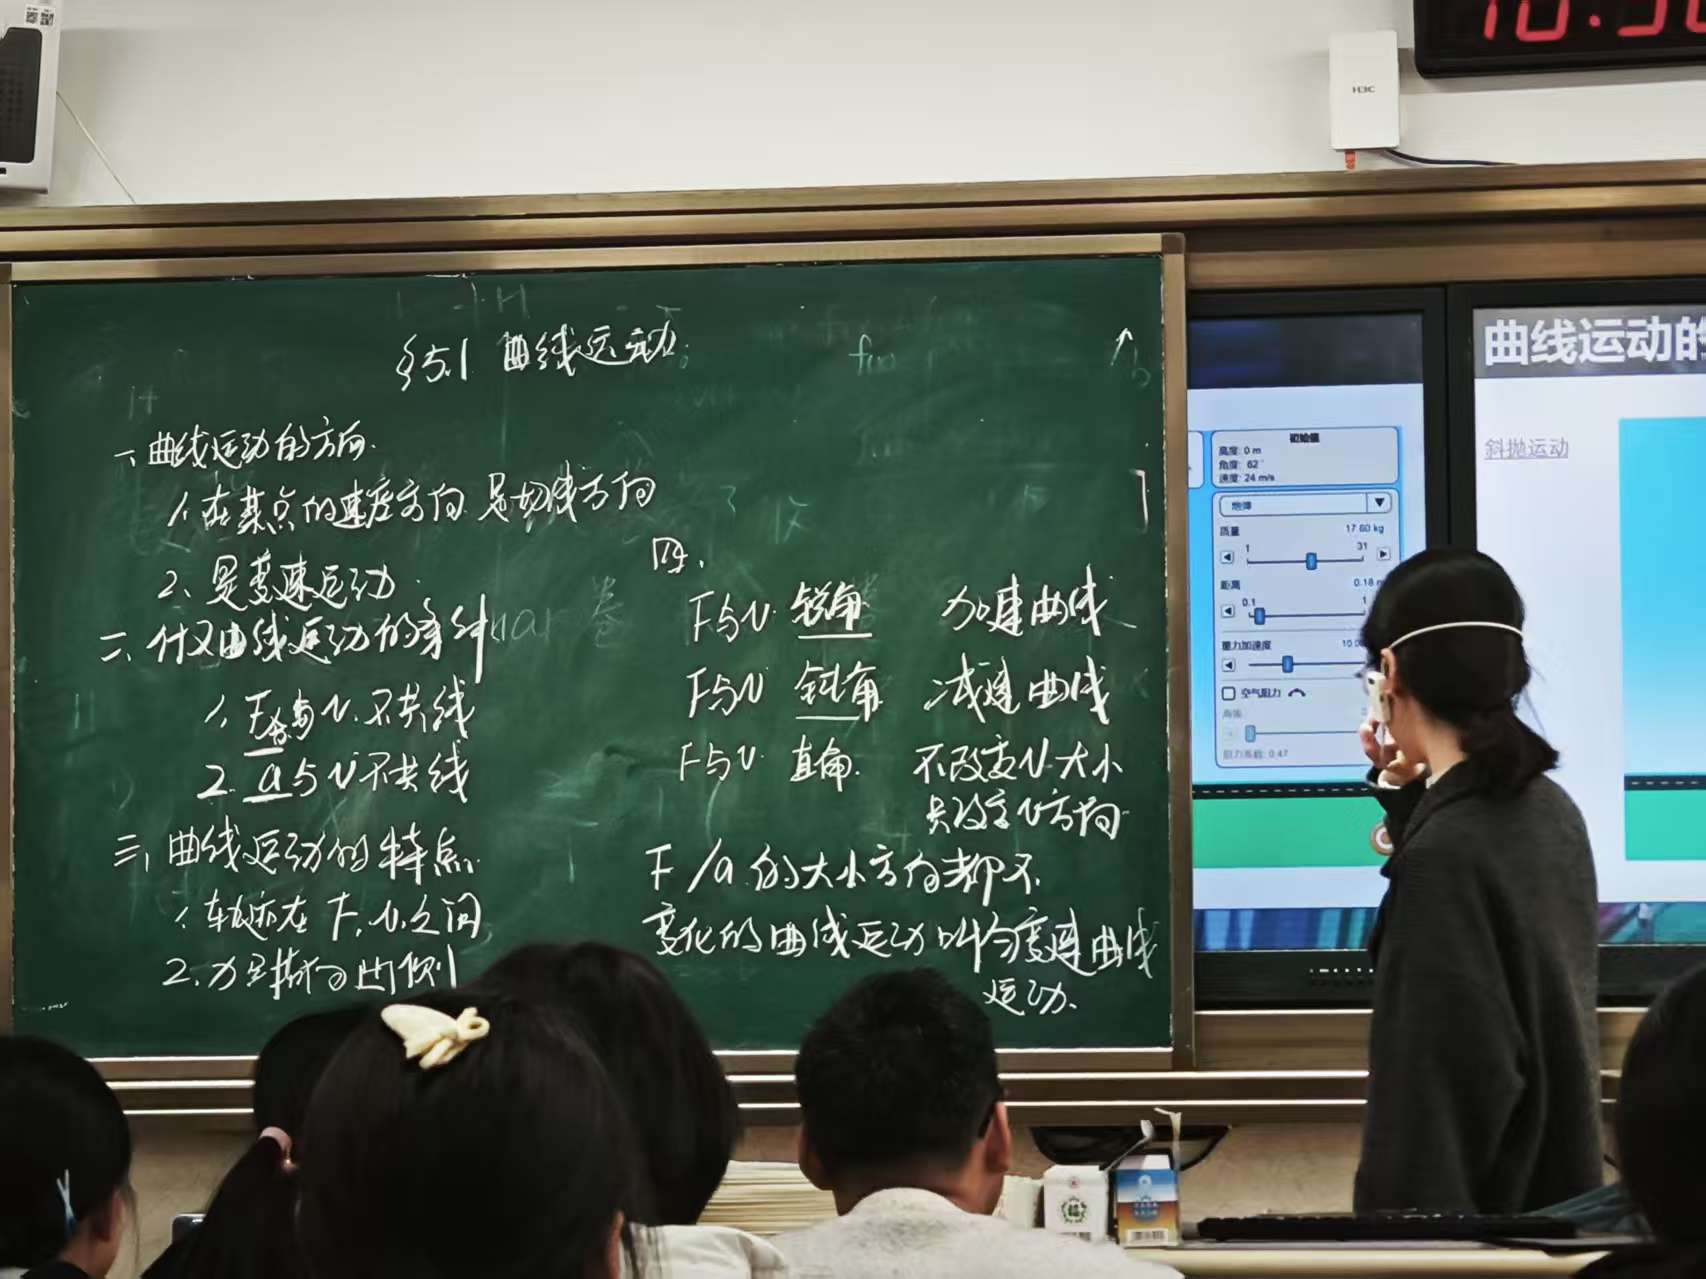 10:30
H3C
§5.1 曲线运动
一、曲线运动的方向.
1.在某点的速度方向是切线方向
2、是变速运动.
二、什又曲线运动的条件
1、F合与v不共线
2. a与v不共线
三、曲线运动的特点.
1.轨迹在F,v之间
2.力
四、
F与v 锐角 加速曲线
F与v 斜角 减速曲线
F与v 直角. 不改变v大小
只改变v方向
F/a的大小方向都不
变化的曲线运动叫匀变速曲线
运动.
初始值
高度: 0 m
角度: 62°
速度: 24 m/s
炮弹
质量 17.60 kg
1 31
距离 0.18
0.1 1
重力加速度 10.0
空气阻力
高度
阻力系数: 0.47
曲线运动的
斜抛运动